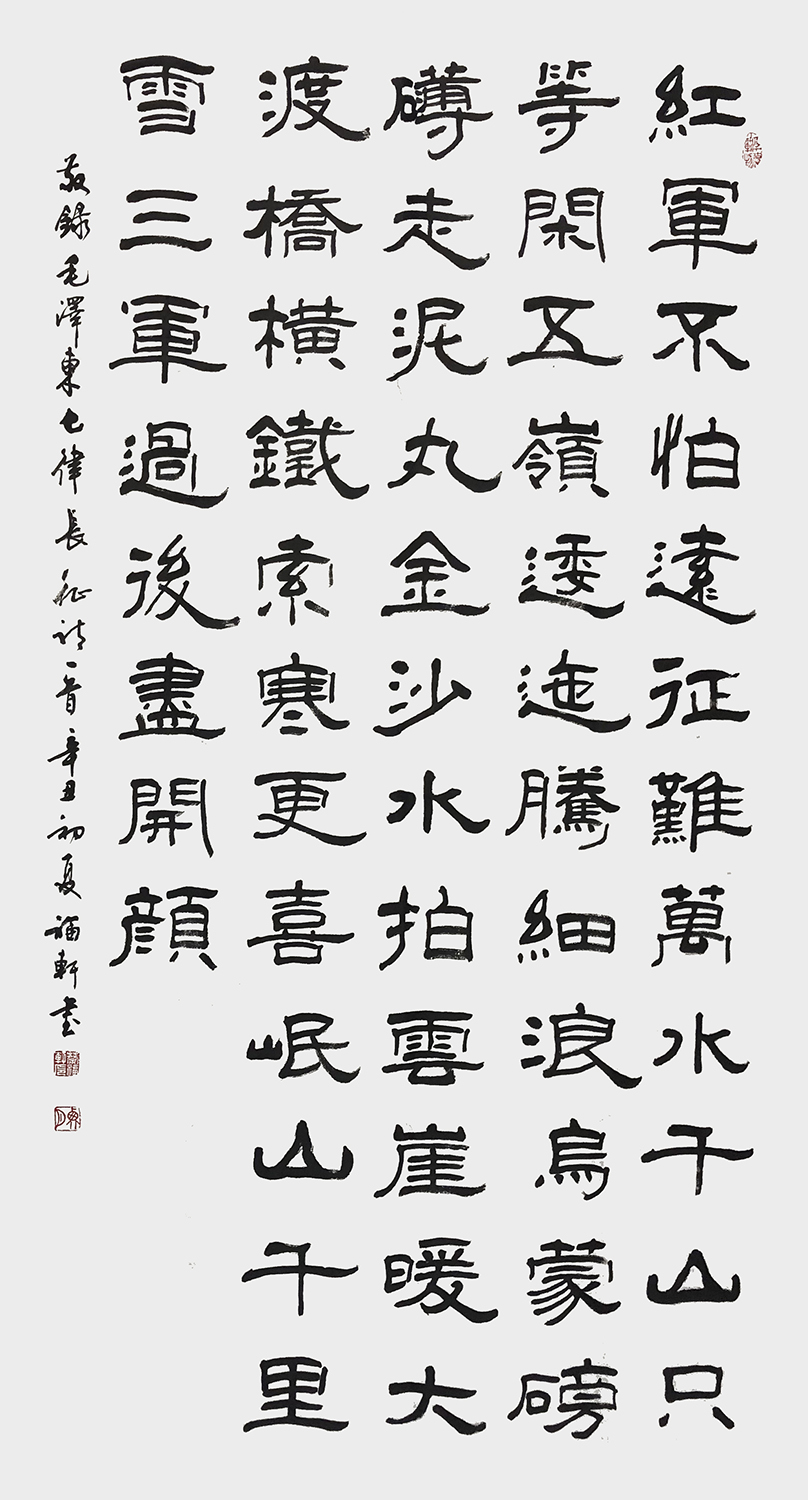 紅軍不怕遠征難萬水千山只
等閑五嶺逶迤騰細浪烏蒙磅
礴走泥丸金沙水拍雲崖暖大
渡橋橫鐵索寒更喜岷山千里
雪三軍過後盡開顔
敬錄毛澤東七律長征詩一首辛丑初夏福軒書